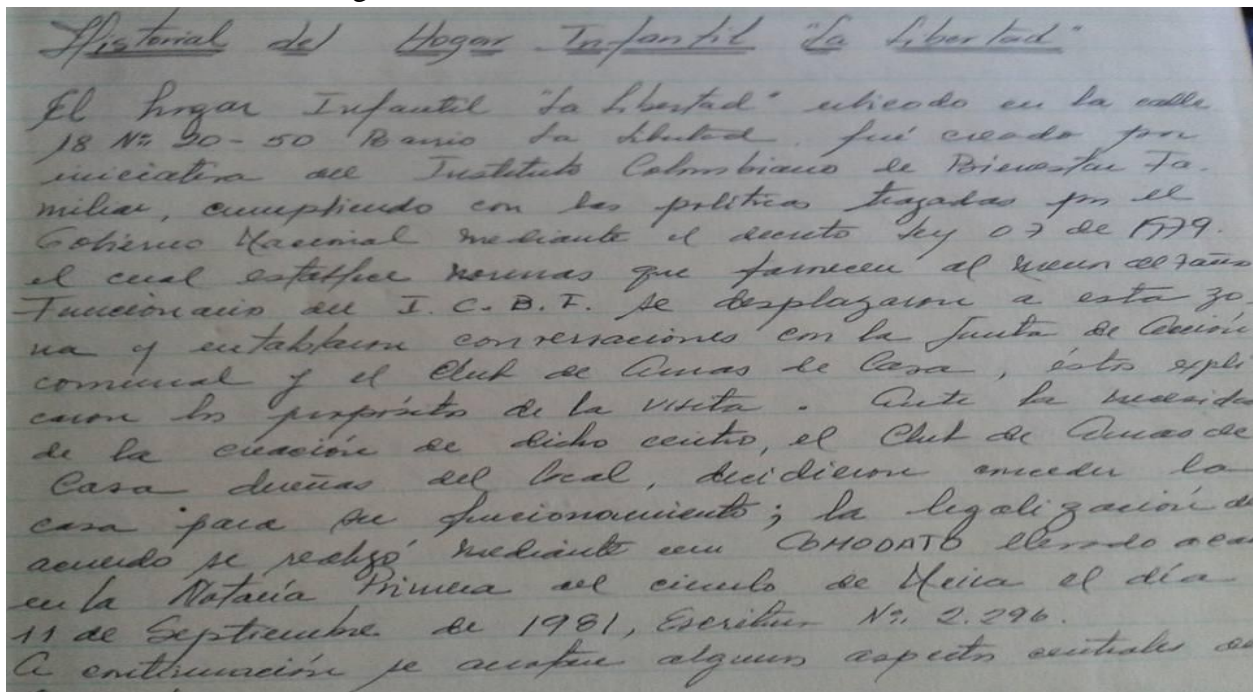 Historial del Hogar Infantil "La Libertad"
El hogar Infantil "La Libertad" ubicado en la calle
18 Nº 20-50 Barrio La Libertad fué creado por
iniciativa del Instituto Colombiano de Bienestar Fa-
miliar, cumpliendo con las políticas trazadas por el
Gobierno Nacional mediante el decreto Ley 07 de 1979.
el cual establece normas que favorecen al menor de 7 años
Funcionario del I.C.B.F. se desplazaron a esta zo
na y entablaron conversaciones con la Junta de Acción
comunal y el Club de Amas de Casa, éstos expli
caron los propósitos de la visita. Ante la necesida
de la creación de dicho centro, el Club de Amas de
Casa dueñas del local, decidieron conceder la
casa para su funcionamiento; la legalización d
acuerdo se realizó mediante un COMODATO llevado a ca
en la Notaría Primera del circulo de Neiva el día
11 de Septiembre de 1981, Escritura Nº. 2.296.
A continuación se anotan algunos aspectos centrales de